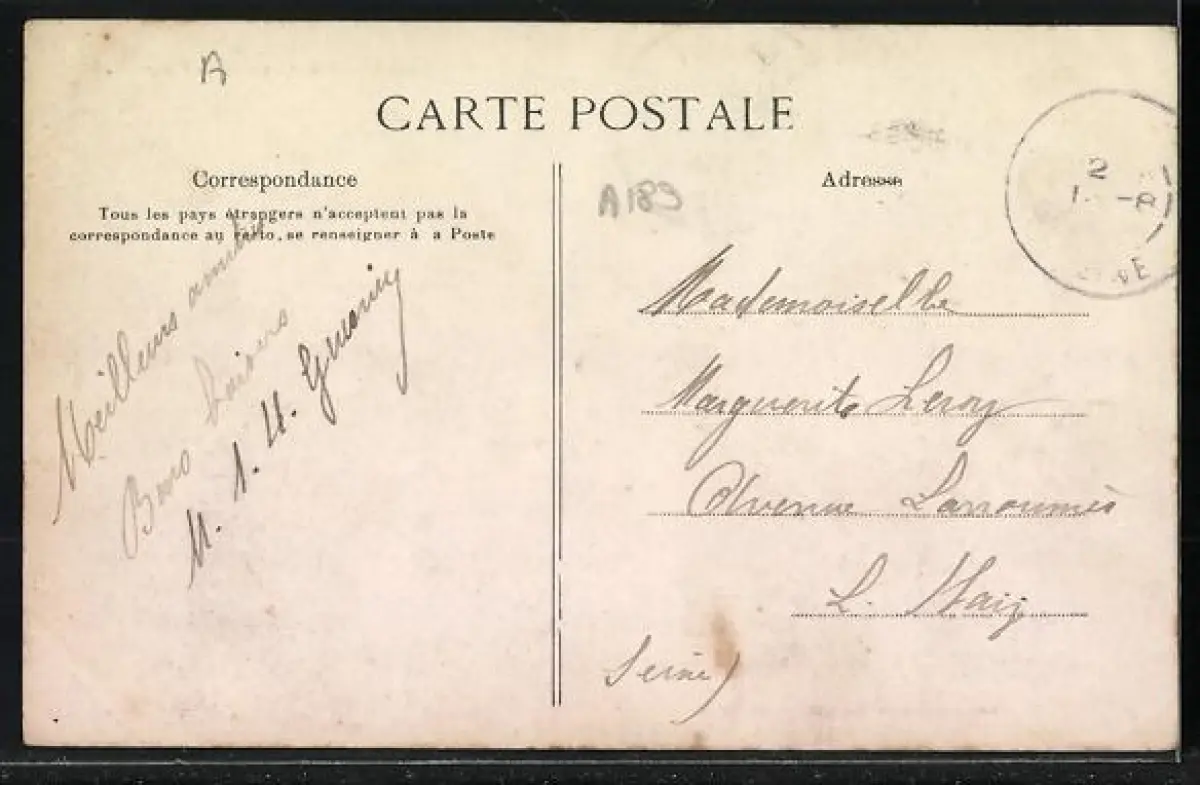 A
CARTE POSTALE
Correspondance
Tous les pays étrangers n'acceptent pas la
correspondance au recto, se renseigner à a Poste
Meilleurs amitiés
Bons baisers
A189
Adresse
Mademoiselle
Marguerite Leroy
Avenue Larroumès
L. Haÿ
Seine)
2